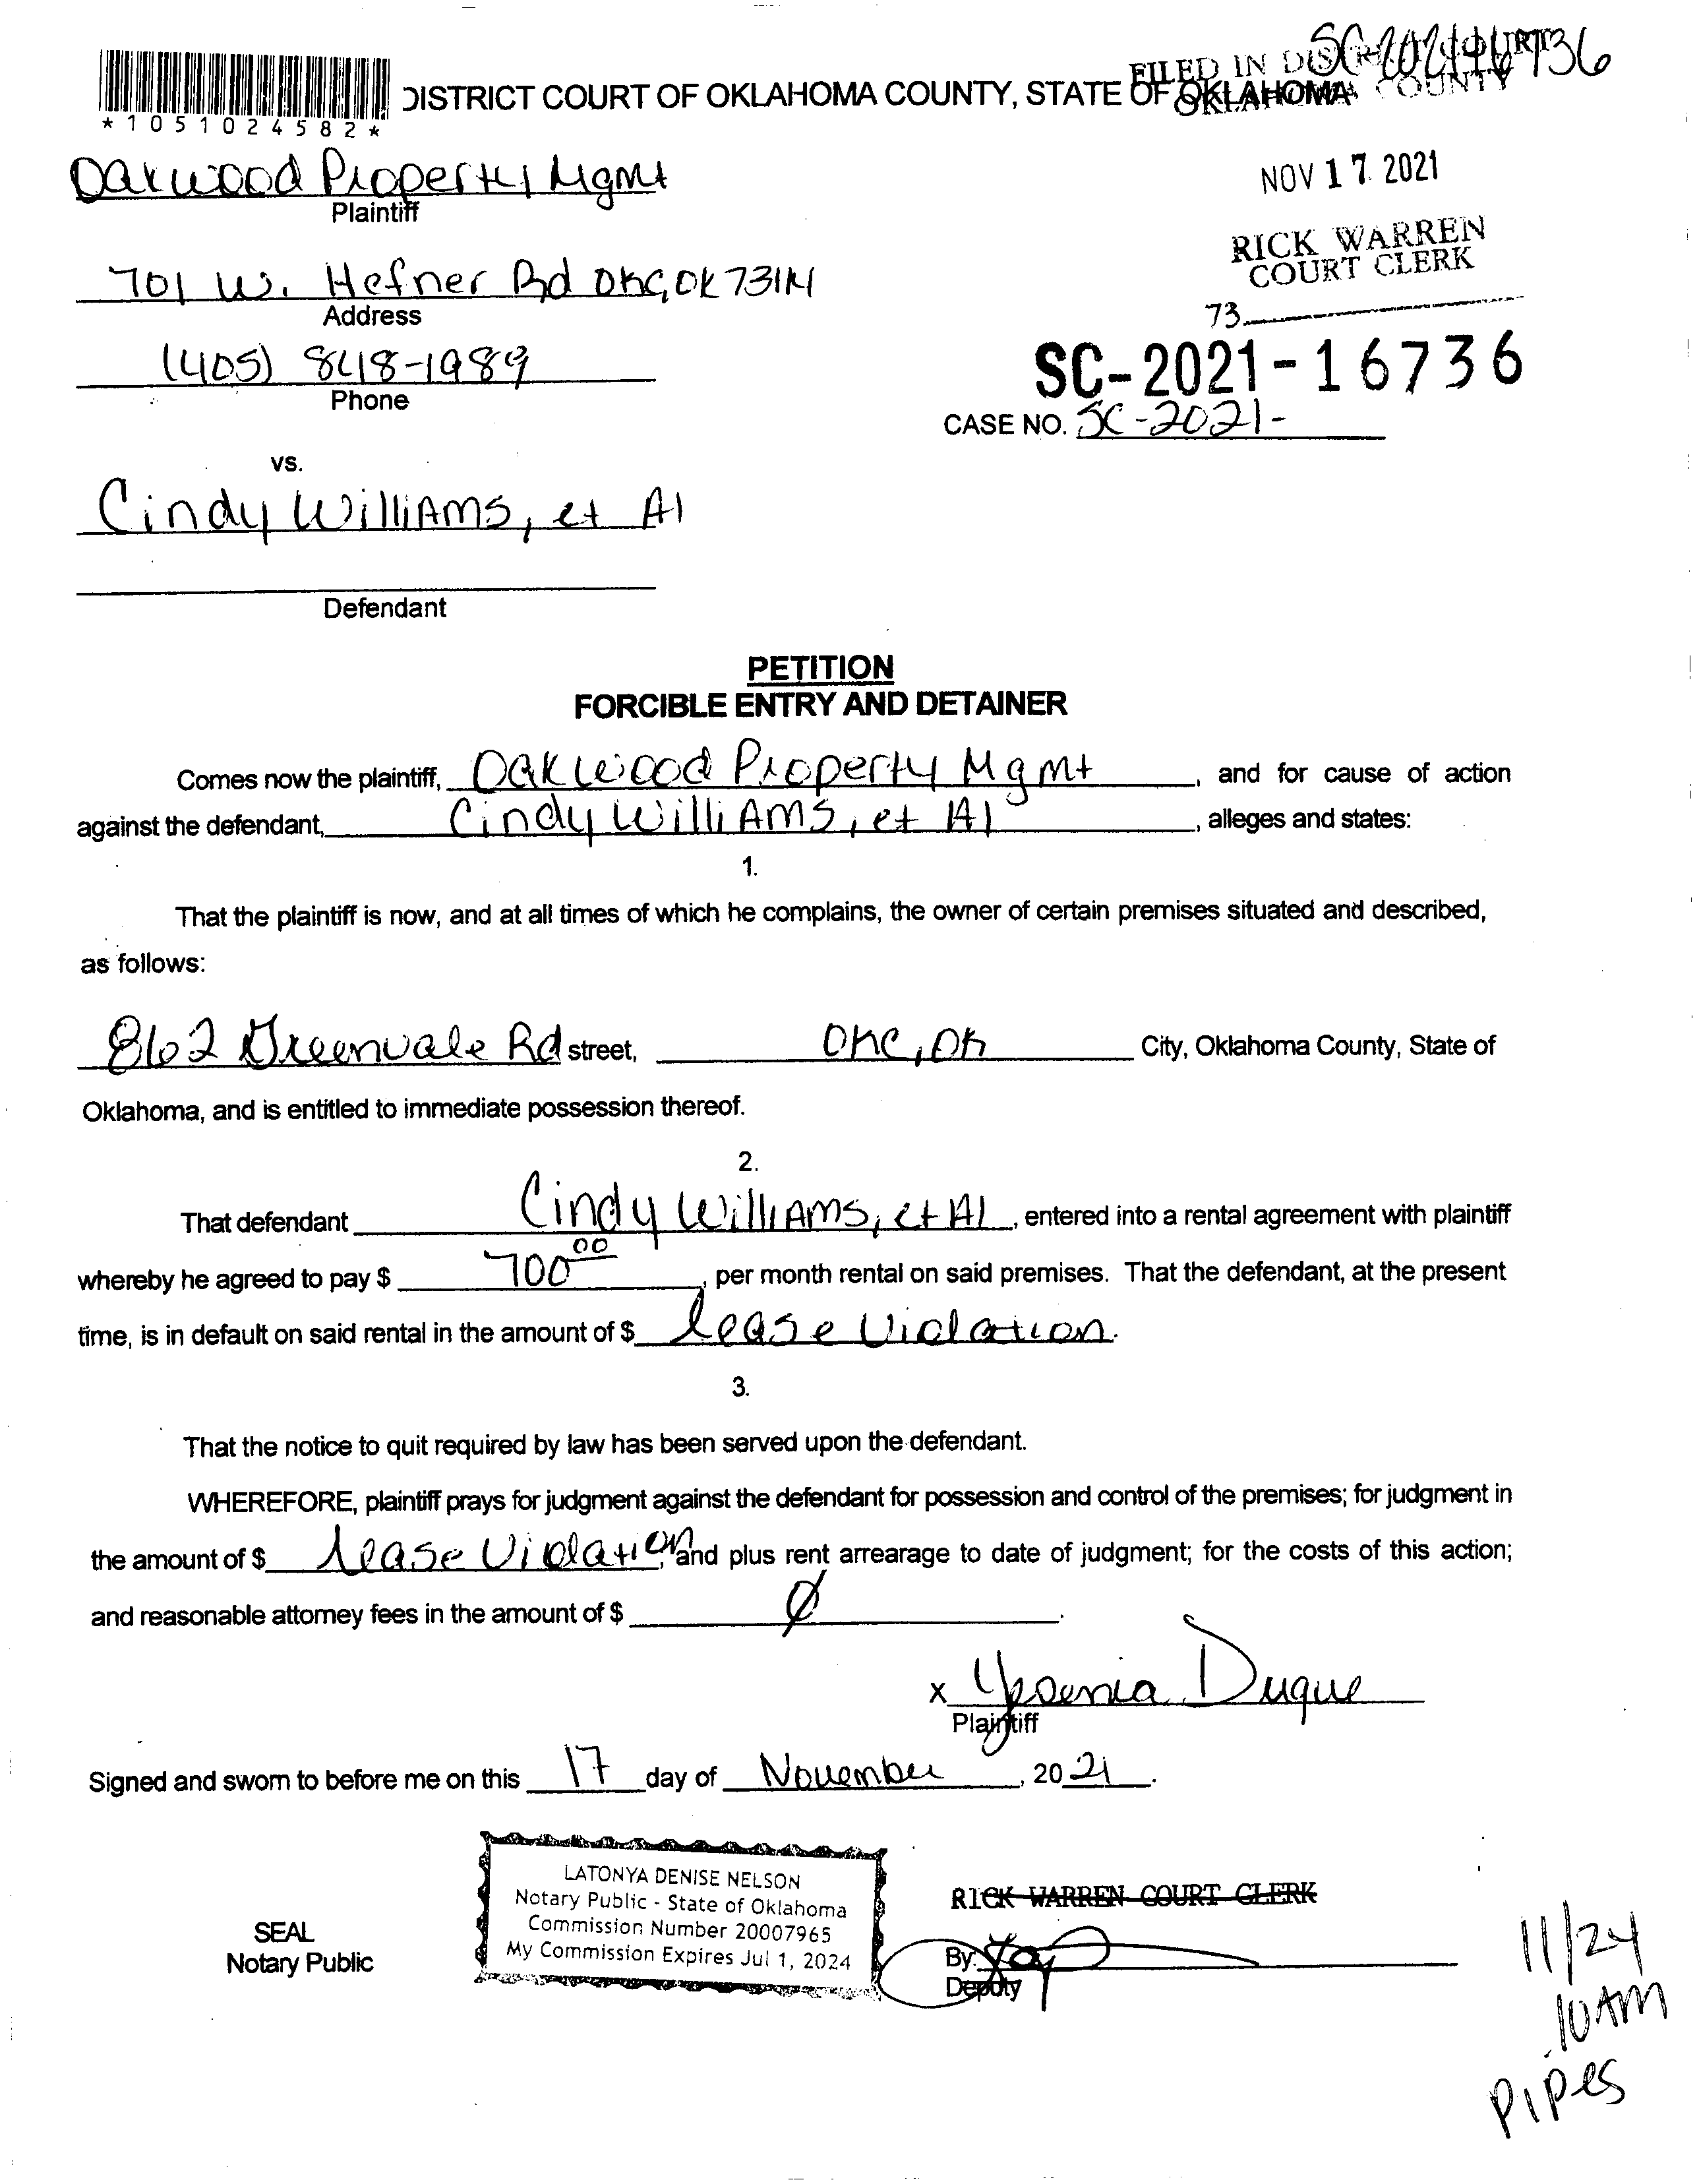 SC-2021-16736
FILED IN DISTRICT COURT
*1051024582*
DISTRICT COURT OF OKLAHOMA COUNTY, STATE OF OKLAHOMA
OKLAHOMA COUNTY
NOV 17 2021
RICK WARREN
COURT CLERK
73
Oakwood Property Mgmt
Plaintiff
701 W. Hefner Rd OKC, OK 73114
Address
(405) 848-1989
Phone
SC-2021-16736
CASE NO. SC-2021-
vs.
Cindy Williams, et Al
Defendant
PETITION
FORCIBLE ENTRY AND DETAINER
Comes now the plaintiff, Oakwood Property Mgmt, and for cause of action
against the defendant, Cindy Williams, et Al, alleges and states:
1.
That the plaintiff is now, and at all times of which he complains, the owner of certain premises situated and described,
as follows:
862 Greenvale Rd street, OKC, OK City, Oklahoma County, State of
Oklahoma, and is entitled to immediate possession thereof.
2.
That defendant Cindy Williams, et Al, entered into a rental agreement with plaintiff
whereby he agreed to pay $ 700 00, per month rental on said premises. That the defendant, at the present
time, is in default on said rental in the amount of $ lease Violation.
3.
That the notice to quit required by law has been served upon the defendant.
WHEREFORE, plaintiff prays for judgment against the defendant for possession and control of the premises; for judgment in
the amount of $ lease Violation, and plus rent arrearage to date of judgment; for the costs of this action;
and reasonable attorney fees in the amount of $ Ø.
x Yesenia Duque
Plaintiff
Signed and sworn to before me on this 17 day of November, 2021.
LATONYA DENISE NELSON
Notary Public - State of Oklahoma
Commission Number 20007965
My Commission Expires Jul 1, 2024
SEAL
Notary Public
RICK WARREN COURT CLERK
By:
Deputy
11/24
10 AM
Pipes